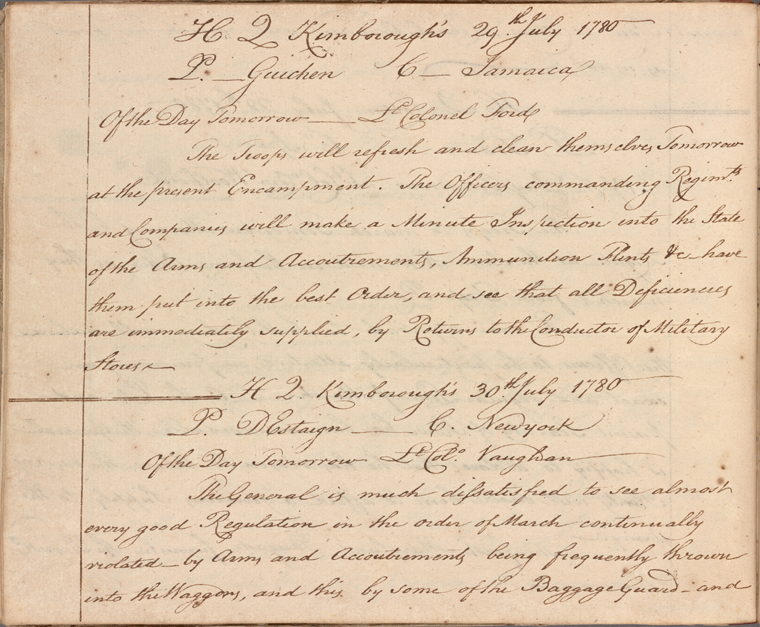 H Q Kimborough's 29.th July 1780
P. — Guichen C — Jamaica
Of the Day Tomorrow — Lt Colonel Ford
The Troops will refresh and clean themselves Tomorrow
at the present Encampment. The Officers commanding Regimts.
and Companies will make a Minute Inspection into the State
of the Arms and Accoutrements, Ammunition Flints &c have
them put into the best Order, and see that all Deficiencies
are immediately supplied, by Returns to the Conductor of Military
Stores
H Q Kimborough's 30th July 1780
P. DEstaign — C. Newyork
Of the Day Tomorrow Lt Colo Vaughan
The General is much dissatisfied to see almost
every good Regulation in the order of March continually
violated by Arms and Accoutrements being frequently thrown
into the Waggons, and this by some of the Baggage Guard — and